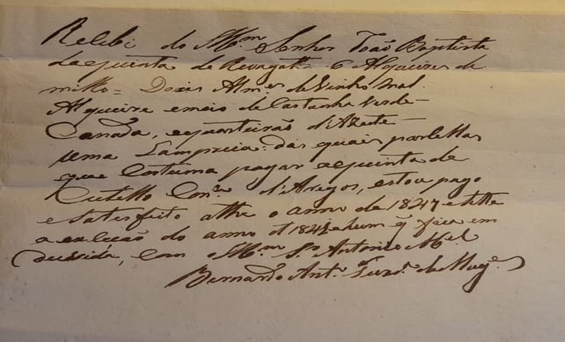 Recibi do Mm Senhor João Baptista
da quinta de 6 Alqueires de
milho = Dois Almes de Vinho mal
Alqueire e meio de Castanha Verde
Canada, e quarteirão d'Azeite
uma Lampreia: das quais
que Costuma pagar a quinta de
d'Aregos, estou pago
e Satisfeito athe o anno de 1847 e
a exceção do anno d'1843 hum q fica em
duvida, com o Mm Sr Antonio Mel
Bernardo Anto de